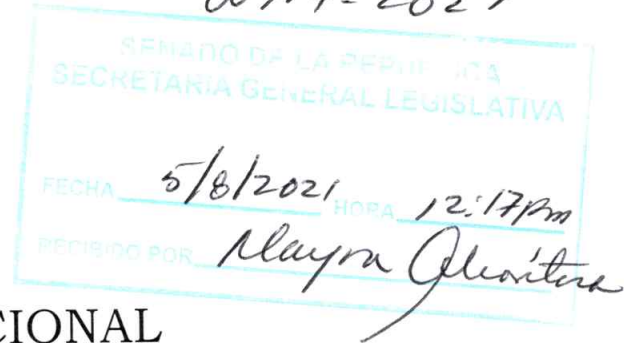 -2021
SENADO DE LA REPUBLICA
SECRETARIA GENERAL LEGISLATIVA
FECHA 5/8/2021 HORA 12:17pm
RECIBIDO POR Mayra
CIONAL